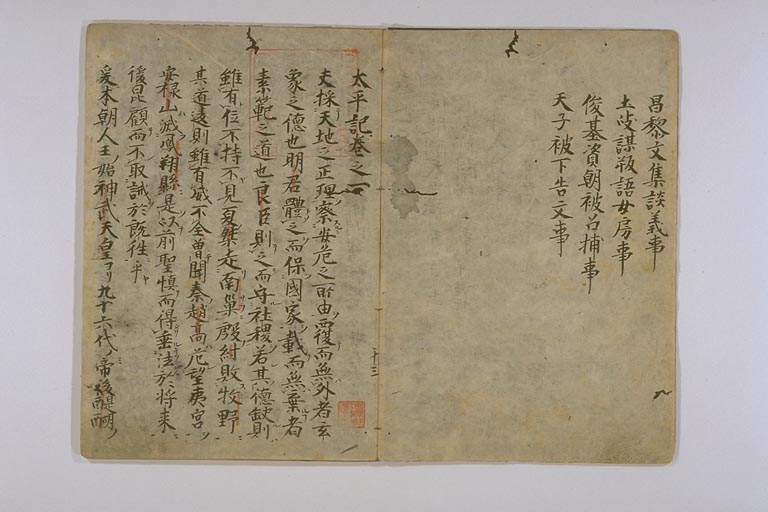 昌黎文集談義事
土岐謀叛語女房事
俊基資朝被召捕事
天子被下告文事
太平記巻之一
夫採天地之正理察安危之所由覆而無外者玄
象之德也明君體之而保國家載而無棄者
素範之道也良臣則之而守社稷若其德缺則
雖有位不持不見夏桀走南巢殷紂敗牧野
其道違則雖有威不全曽聞秦趙高死望夷宮
安禄山滅鳳翔縣是以前聖慎而得垂法於将来
後昆顧而不取誡於既往乎
爰本朝人王ノ始神武天皇ヨリ九十六代ノ帝後醍醐ノ